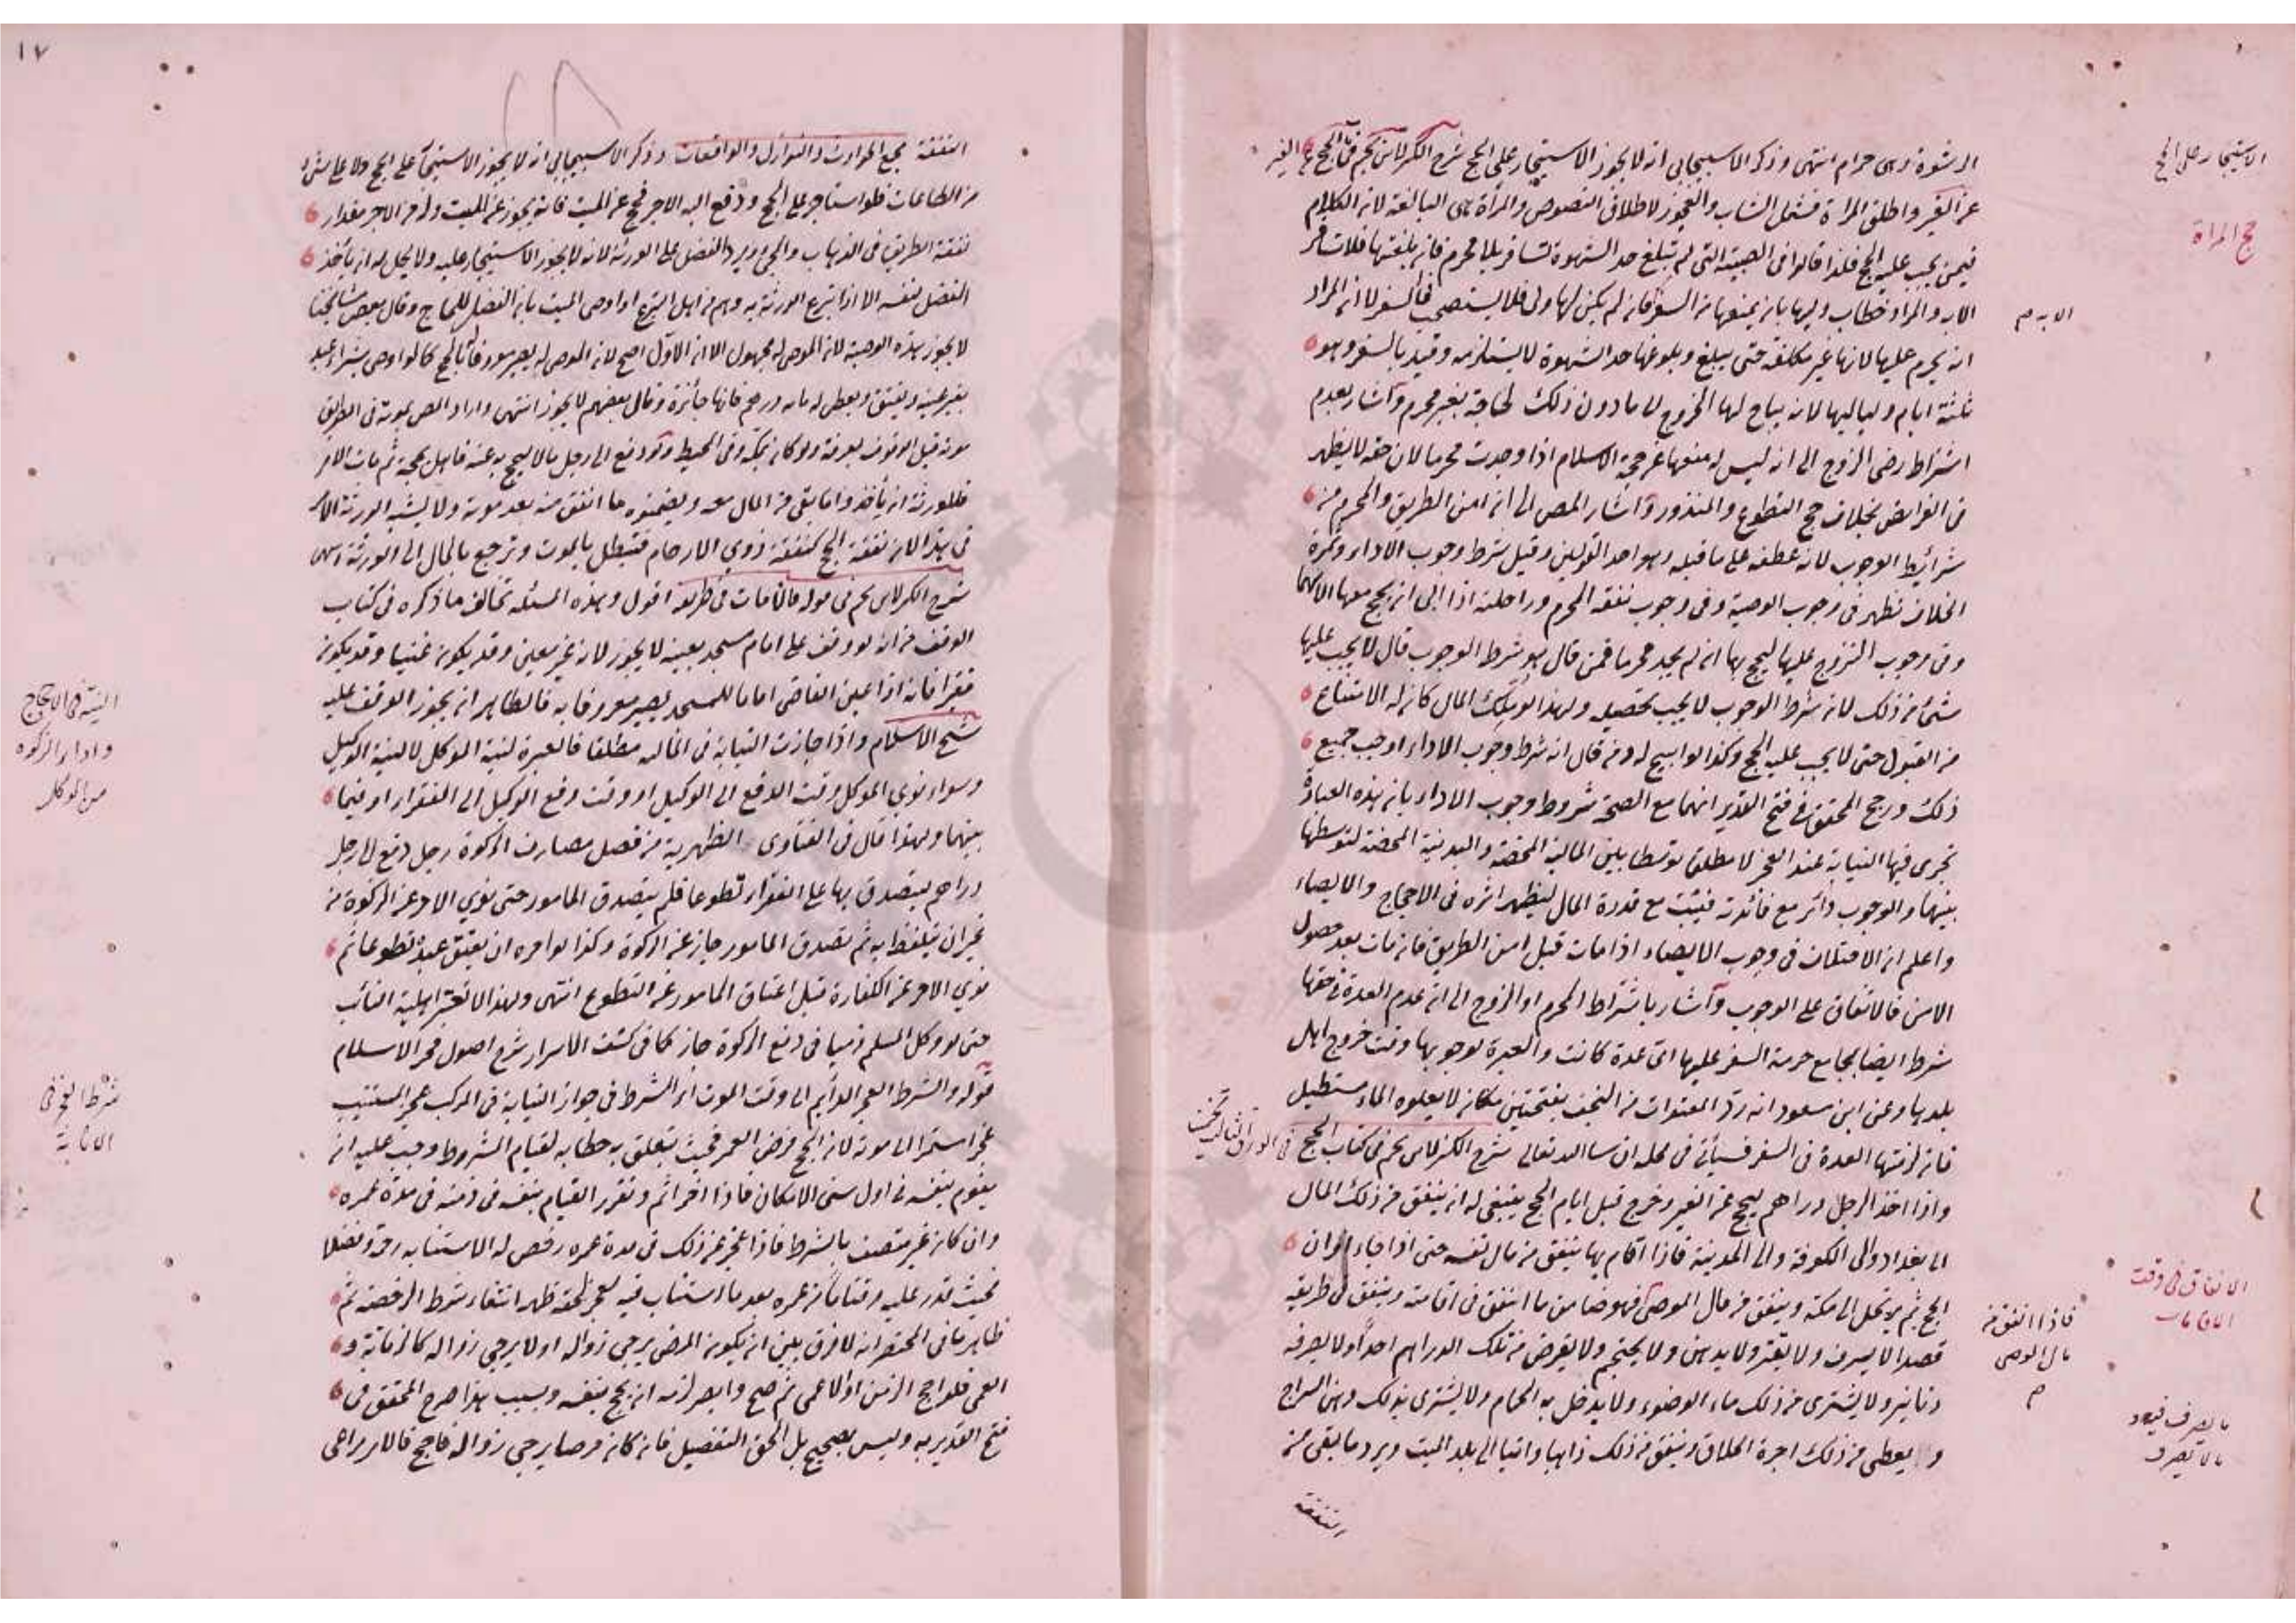 الرشوة وهى حرام انتهى وذكر الاسبيجابى انه لا يجوز الاستيجار على الحج شرح الكنز لابن نجيم فى الحج عن الغير
عن الغير واطلق المراة فشمل الشاب والعجوز لاطلاق النصوص والمرأة هى البالغة لان الكلام
فيمن يجب عليه الحج فلذا قالوا فى الصبية التى لم تبلغ حد الشهوة تسافر بلا محرم فان بلغتها فلا تسافر
الا به والمراد خطاب وليها بان يمنعها من السفر فان لم يكن لها ولى فلا يستصحب فى السفر لا ان المراد
انه يحرم عليها لانها غير مكلفة حتى يبلغ وبلوغها حد الشهوة لا يستلزمه وقيد بالسفر وهو
ثلثة ايام ولياليها لانه يباح لها الخروج الى ما دون ذلك لحاجة بغير محرم واشار بعدم
اشتراط رضى الزوج الى انه ليس له منعها عن حجة الاسلام اذا وجدت محرما لان حقه لا يظهر
فى الفرائض بخلاف حج التطوع والمنذور واشار المص الى ان امن الطريق والمحرم من
شرائيط الوجوب لانه عطفه على ما قبله وهو احد القولين وقيل شرط وجوب الاداء وثمرة
الخلاف تظهر فى وجوب الوصية وفى وجوب نفقة المحرم وراحلته اذا ابى ان يحج معها الا بهما
وفى وجوب التزوج عليها ليحج بها ان لم يجد محرما فمن قال هو شرط الوجوب قال لا يجب عليها
شئ من ذلك لان شرط الوجوب لا يجب تحصيله ولهذا لو ملك المال كان له الامتناع
من القبول حتى لا يجب عليه الحج وكذا لو ابيح له ومن قال انه شرط وجوب الاداء اوجب جميع
ذلك ورجح المحقق فى فتح القدير انهما مع الصحة شروط وجوب الاداء بان هذه العبادة
تجرى فيها النيابة عند العجز لا مطلقا توسطا بين المالية المحضة والبدنية المحضة لتوسطها
بينهما والوجوب دائر مع فائدته فيثبت مع قدرة المال ليظهر اثره فى الاحجاج والايصاء
واعلم ان الاختلاف فى وجوب الايصاء اذا مات قبل امن الطريق فان مات بعد حصول
الامن فالاتفاق على الوجوب واشار باشتراط المحرم او الزوج الى ان عدم العدة فى حقها
شرط ايضا بجامع حرمة السفر عليها اى عدة كانت والعبرة لوجوبها وقت خروج اهل
بلدها وعن ابن مسعود انه رد المعتدات من النجف بفتحتين مكان لا يعلوه الماء مستطيل
فان لزمتها العدة فى السفر فسيأتى فى محله ان شا الله تعالى شرح الكنز لابن نجيم فى كتاب الحج
واذا اخذ الرجل دراهم ليحج عن الغير وخرج قبل ايام الحج ينبغى له ان ينفق من ذلك المال
الى بغداد والى الكوفة والى المدينة فاذا اقام بها ينفق من مال نفسه حتى اذا جاء اوان
الحج ثم يرتحل الى مكة وينفق من مال الموصى فهو ضامن ما انفق فى اقامته وينفق فى طريقه
قصدا لا يسرف ولا يقتر ولا يدهن ولا يحتجم ولا يقرض من تلك الدراهم احدا ولا يصرفه
دنانير ولا يشترى من ذلك ماء الوضوء ولا يدخل به الحمام ولا يشترى بذلك دهن السراج
و يعطى من ذلك اجرة الحلاق وينفق من ذلك ذاهبا واتيا الى بلد الميت ويرد ما بقى من
النفقة
الاستيجار على الحج
حج المراة
الا به م
الانفاق فى وقت
الاقامات
فاذا انفق من
مال الموصى
م
ما يصرف فيه و
ما لا يصرف
١٧
النفقة مجمع الحوادث والنوازل والواقعات وذكر الاسبيجابى انه لا يجوز الاستيجار على الحج ولا على شئ
من الطاعات فلو استاجر على الحج ودفع اليه الاجر فحج عن الميت فانه يجوز عن الميت وله من الاجر مقدار
نفقة الطريق فى الذهاب والمجئ ويرد الفضل على الورثة لانه لا يجوز الاستيجار عليه ولا يحل له ان يأخذ
الفضل لنفسه الا اذا تبرع الورثة به وهم من اهل التبرع او اوصى الميت بان الفضل للحاج وقال بعض مشايخنا
لا يجوز هذه الوصية لان الموصى له مجهول الا ان الاول اصح لان الموصى له يصير معروفا بالحج كما لو اوصى بشراء عبد
بغير عينه ويعتق ويعطى له مائة درهم فانها جائزة وقال بعضهم لا يجوز انتهى واراد المص بموته فى الطريق
موته قبل الوقوف بعرفة ولو كان بمكة وفى المحيط ولو دفع الى رجل مالا ليحج به عنه فاهل بحجة ثم مات الامر
فللورثة ان يأخذوا ما بقى من المال معه ويضمنوه ما انفق منه بعد موته ولا يشبه الورثة الامر
فى هذا لان نفقة الحج كنفقة ذوى الارحام فتبطل بالموت وترجع بالمال الى الورثة انتهى
شرح الكنز لابن نجيم فى قوله فان مات فى طريقه اقول وهذه المسئلة تخالف ما ذكره فى كتاب
الوقف من انه لو وقف على امام مسجد بعينه لا يجوز لانه غير معين وقد يكون غنيا وقد يكون
فقيرا فانه اذا عين القاضى اماما للمسجد يصير معروفا به فالظاهر ان يجوز الوقف عليه
شيخ الاسلام واذا جازت النيابة فى المالية مطلقا فالعبرة لنية الموكل لا لنية الوكيل
وسواء نوى الموكل وقت الدفع الى الوكيل او وقت دفع الوكيل الى الفقراء او فيما
بينهما ولهذا قال فى الفتاوى الظهرية من فصل مصارف الزكوة رجل دفع الى رجل
دراهم ليتصدق بها على الفقراء تطوعا فلم يتصدق المامور حتى نوى الامر عن الزكوة من
غير ان يتلفظ به ثم تصدق المامور جاز عن الزكوة وكذا لو امره ان يعتق عبده تطوعا ثم
نوى الامر عن الكفارة قبل اعتاق المامور عن التطوع انتهى ولهذا لا تعتبر اهلية النائب
حتى لو وكل المسلم ذميا فى دفع الزكوة جاز كما فى كشف الاسرار شرح اصول فخر الاسلام
قوله والشرط العجز الدائم الى وقت الموت اى الشرط فى جواز النيابة فى المركب عجز المستنيب
عجزا مستمرا الى موته لان الحج فرض العمر فحيث تعلق به خطابه لقيام الشروط وجب عليه ان
يقوم بنفسه فى اول سنى الامكان فاذا اخر اثم وتقرر القيام بنفسه فى ذمته فى مدة عمره
وان كان غير متصف بالشرط فاذا عجز عن ذلك فى مدة عمره رخص له الاستنابة رحمة وفضلا
فحيث قدر عليه وقتا ما من عمره بعد ما استناب فيه لعجز لحقه ظهر انتفاء شرط الرخصة ثم
ظاهر ما فى المختصر انه لا فرق بين ان يكون المرض يرجى زواله او لا يرجى زواله كالزمانة و
العمى فلو احج الزمن او الاعمى ثم صح وابصر لزمه ان يحج بنفسه وبسبب هذا صرح المحقق فى
فتح القدير به وليس بصحيح بل الحق التفصيل فان كان مرضا يرجى زواله فاحج فالامر مراعى
النية فى الاحجاج
واداء الزكوة
من الموكل
شرط العجز فى
الانابة